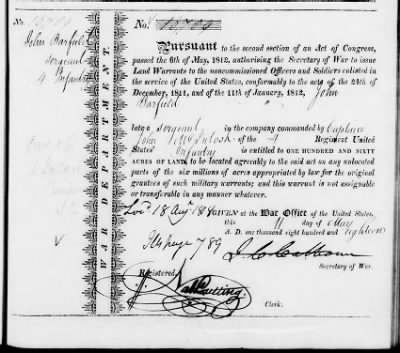 No. 16709
No. 16709
John Barfield
Sergeant
4 Infantry
WAR DEPARTMENT.
Pursuant to the second section of an Act of Congress,
passed the 6th of May, 1812, authorising the Secretary of War to issue
Land Warrants to the noncommissioned Officers and Soldiers enlisted in
the service of the United States, conformably to the acts of the 24th of
December, 1811, and of the 11th of January, 1812, John
Barfield
late a sergeant in the company commanded by Captain
John McIntosh of the 4 Regiment United
States' Infantry is entitled to ONE HUNDRED AND SIXTY
ACRES OF LAND, to be located agreeably to the said act on any unlocated
parts of the six millions of acres appropriated by law for the original
grantees of such military warrants; and this warrant is not assignable
or transferable in any manner whatever.
18 Aug 1818 GIVEN at the War Office of the United States,
this 11 day of May
A. D. one thousand eight hundred and eighteen
789
J. C. Calhoun
Secretary of War.
Registered,
Nath Cutting
Clerk.